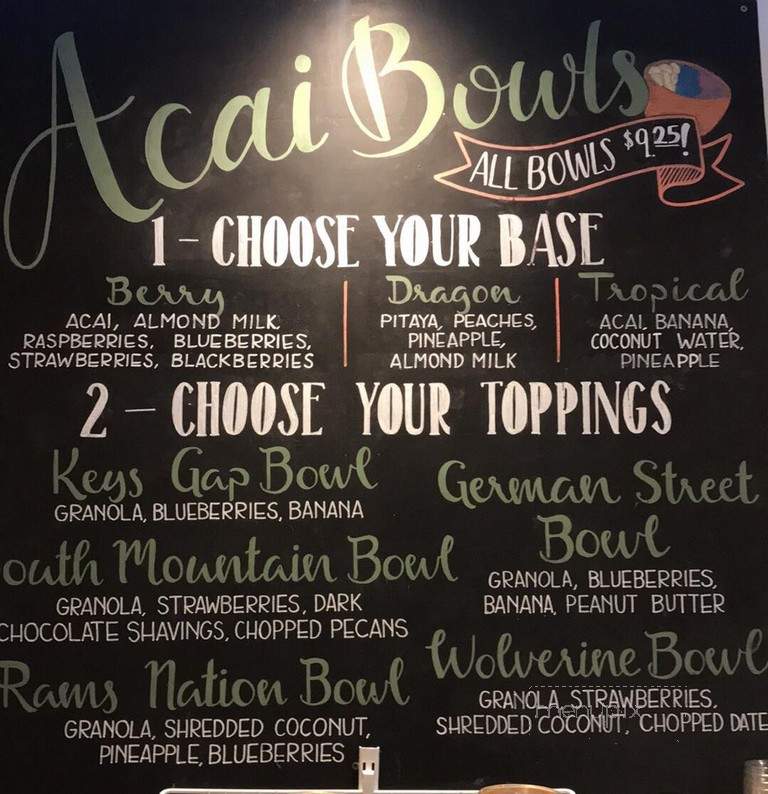 Acai Bowls
ALL BOWLS $9.25!
1 - CHOOSE YOUR BASE
Berry
ACAI, ALMOND MILK,
RASPBERRIES, BLUEBERRIES,
STRAWBERRIES, BLACKBERRIES
Dragon
PITAYA, PEACHES,
PINEAPPLE,
ALMOND MILK
Tropical
ACAI, BANANA,
COCONUT WATER,
PINEAPPLE
2 - CHOOSE YOUR TOPPINGS
Keys Gap Bowl
GRANOLA, BLUEBERRIES, BANANA
outh Mountain Bowl
GRANOLA, STRAWBERRIES, DARK
CHOCOLATE SHAVINGS, CHOPPED PECANS
Rams Nation Bowl
GRANOLA, SHREDDED COCONUT,
PINEAPPLE, BLUEBERRIES
German Street
Bowl
GRANOLA, BLUEBERRIES,
BANANA, PEANUT BUTTER
Wolverine Bowl
GRANOLA, STRAWBERRIES,
SHREDDED COCONUT, CHOPPED DATE
menupix